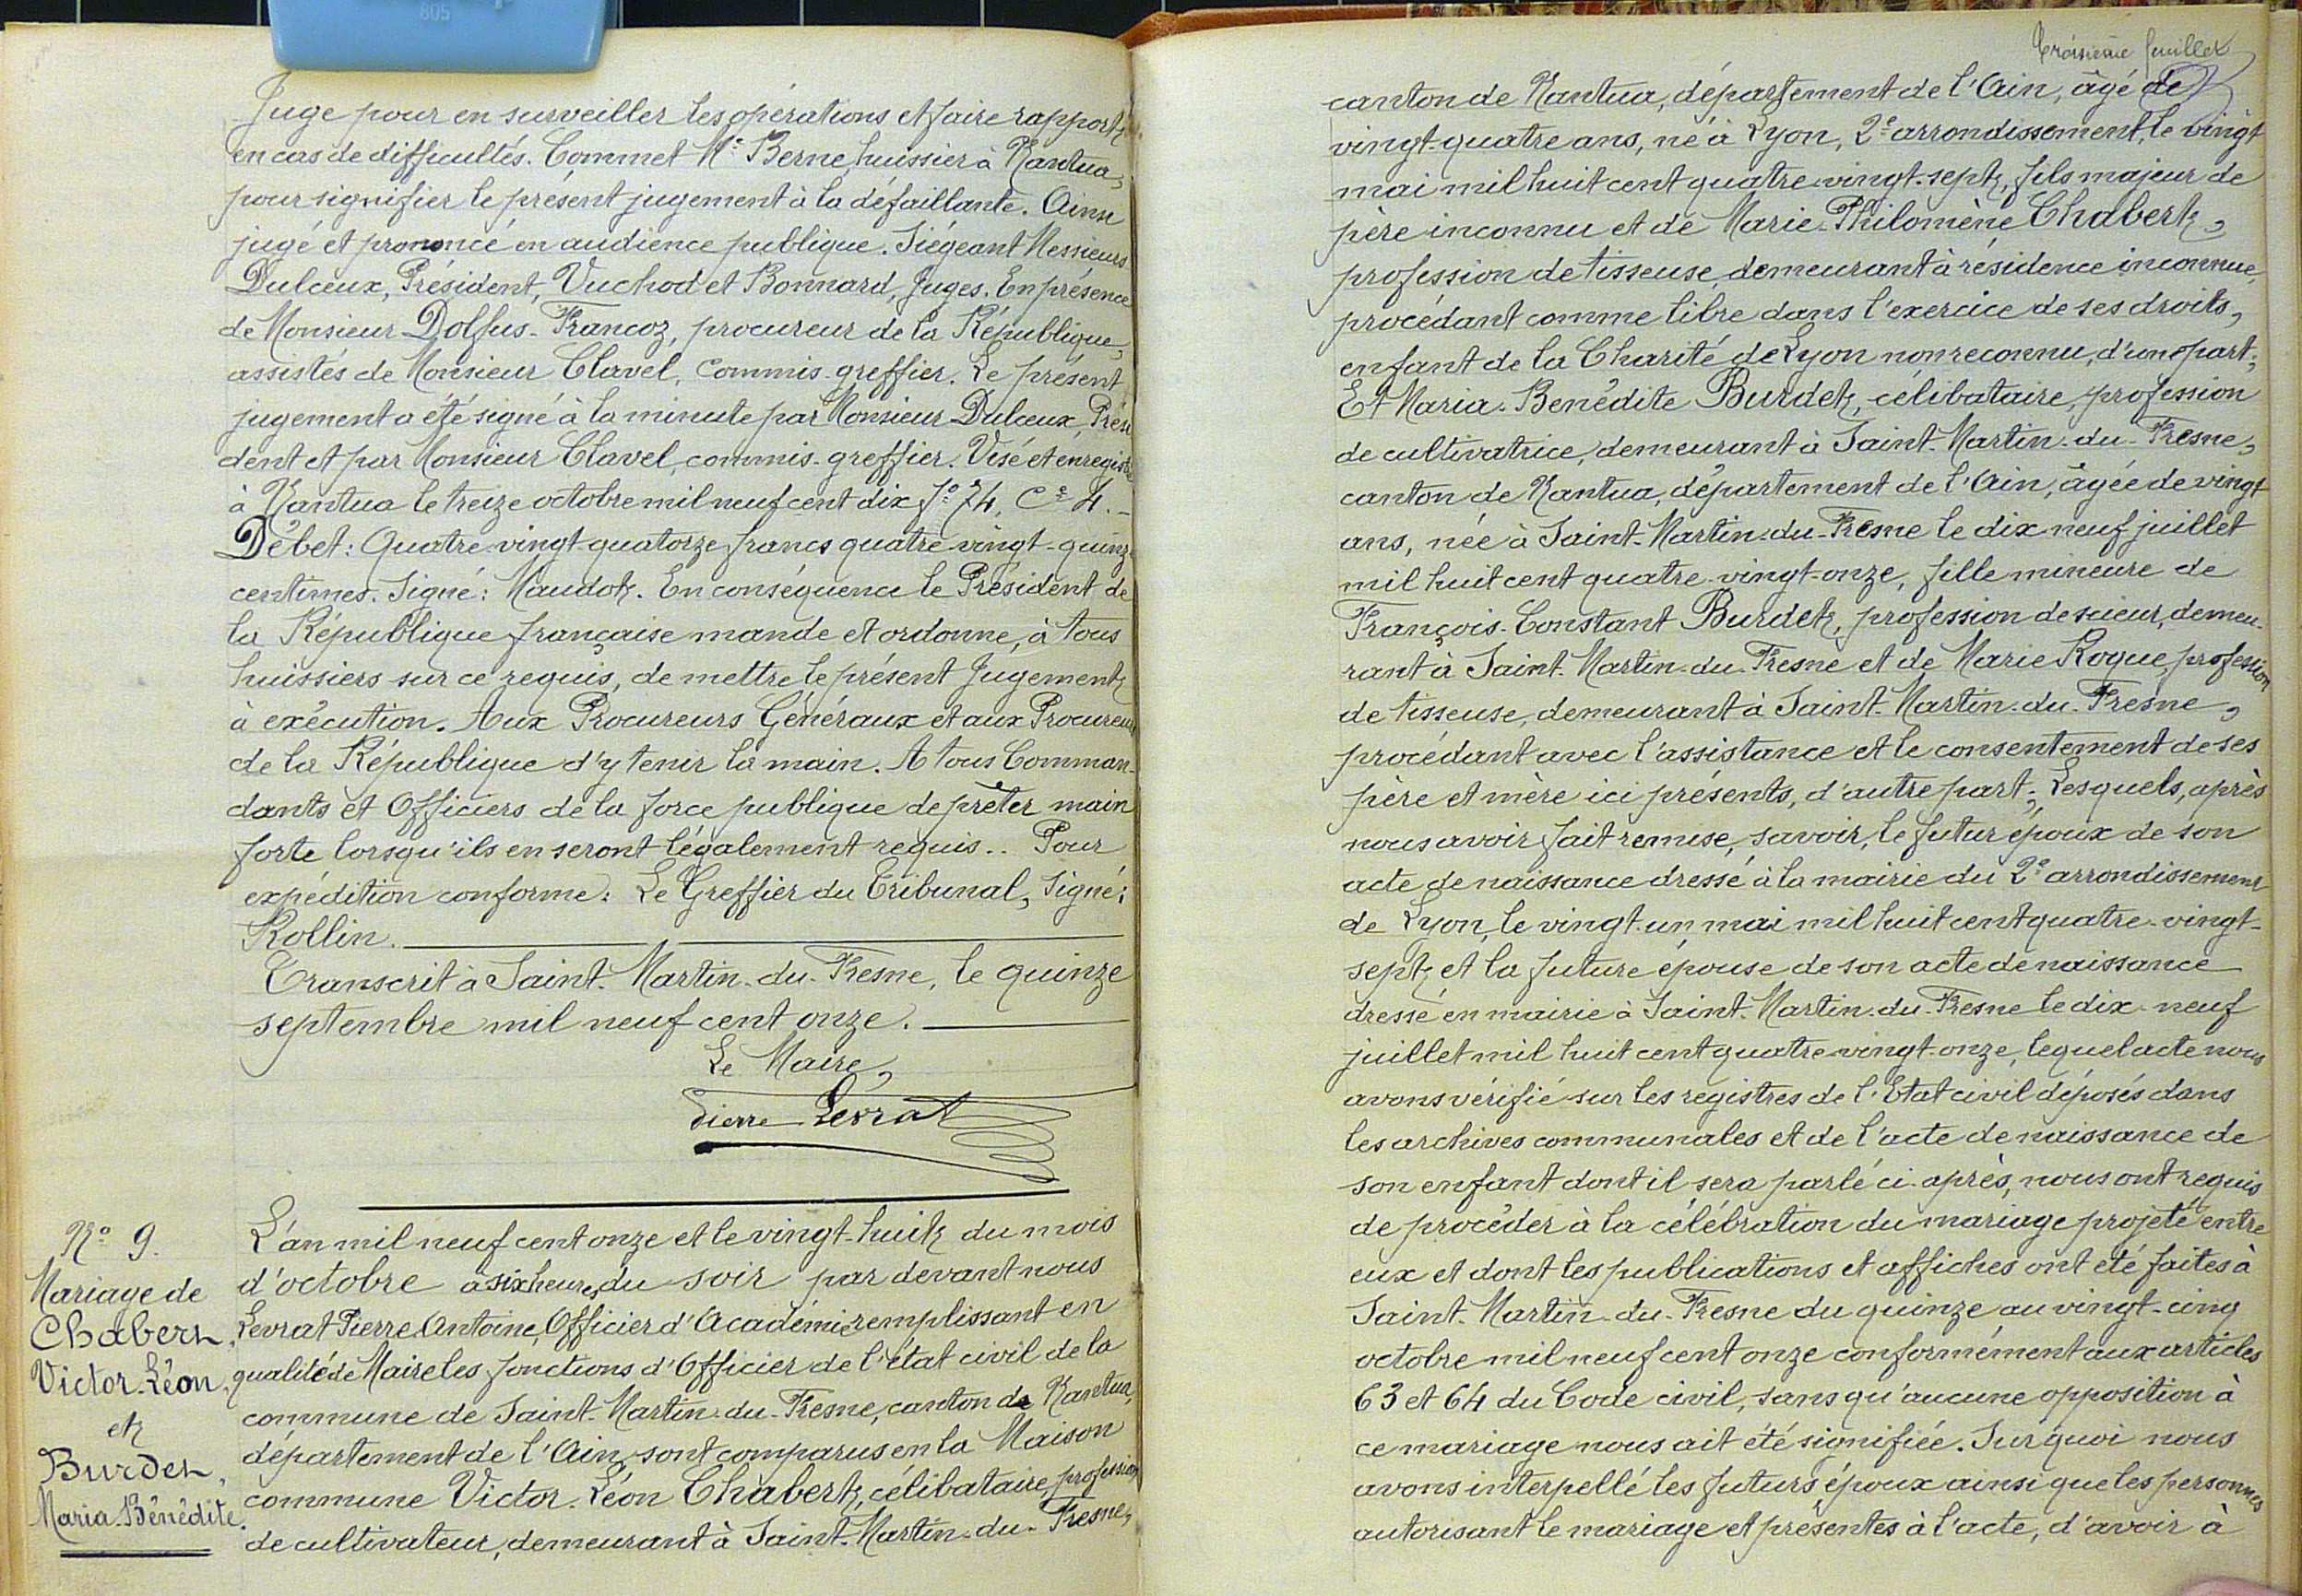 805
Juge pour en surveiller les opérations et faire rapport
en cas de difficultés. Commet Me Berne, huissier à Nantua,
pour signifier le présent jugement à la défaillante. Ainsi
jugé et prononcé en audience publique. Siégeant Messieurs
Dulceux, Président, Vuchod et Bonnard, Juges. En présence
de Monsieur Dolfus-Francoz, procureur de la République,
assistés de Monsieur Clavel, Commis-greffier. Le présent
jugement a été signé à la minute par Monsieur Dulceux, Prési
dent et par Monsieur Clavel, commis-greffier. Visé et enregistré
à Nantua le treize octobre mil neuf cent dix fo 74, Ce 4. _
Débet: Quatre-vingt-quatorze francs quatre-vingt-quinze
centimes. Signé: Maudot. En conséquence le Président de
la République française mande et ordonne, à tous
huissiers sur ce requis, de mettre le présent Jugement
à exécution. Aux Procureurs Généraux et aux Procureurs
de la République d'y tenir la main. A tous Comman-
dants et Officiers de la force publique de prêter main
forte lorsqu'ils en seront légalement requis.. Pour
expédition conforme: Le Greffier du Tribunal, Signé:
Rollin.
Transcrit à Saint-Martin-du-Fresne, le quinze
septembre mil neuf cent onze.
Le Maire,
Pierre Levrat
No 9.
Mariage de
Chabert,
Victor-Léon,
et
Burdet,
Maria-Bénédite.
L'an mil neuf cent onze et le vingt-huit du mois
d'octobre à six heures du soir par devant nous
Levrat Pierre Antoine, Officier d'Académie remplissant en
qualité de Maire les fonctions d'Officier de l'état civil de la
commune de Saint-Martin-du-Fresne, canton de Nantua,
département de l'Ain, sont comparus en la Maison
commune Victor-Léon Chabert, célibataire, profession
de cultivateur, demeurant à Saint-Martin-du-Fresne,
Troisième feuillet
canton de Nantua, département de l'Ain, âgé de
vingt-quatre ans, né à Lyon, 2e arrondissement, le vingt
mai mil huit cent quatre-vingt-sept, fils majeur de
père inconnu et de Marie-Philomène Chabert,
profession de tisseuse, demeurant à résidence inconnue,
procédant comme libre dans l'exercice de ses droits,
enfant de la Charité de Lyon non reconnu, d'une part;
Et Maria-Bénédite Burdet, célibataire, profession
de cultivatrice, demeurant à Saint-Martin-du-Fresne,
canton de Nantua, département de l'Ain, âgée de vingt
ans, née à Saint-Martin-du-Fresne le dix neuf juillet
mil huit cent quatre-vingt-onze, fille mineure de
François-Constant Burdet, profession de scieur, demeu-
rant à Saint-Martin-du-Fresne et de Marie Roque, profession
de tisseuse, demeurant à Saint-Martin-du-Fresne,
procédant avec l'assistance et le consentement de ses
père et mère ici présents, d'autre part; Lesquels, après
nous avoir fait remise, savoir, le futur époux de son
acte de naissance dressé à la mairie du 2e arrondissement
de Lyon, le vingt-un mai mil huit cent quatre-vingt-
sept, et la future épouse de son acte de naissance
dressé en mairie à Saint-Martin-du-Fresne le dix-neuf
juillet mil huit cent quatre-vingt-onze, lequel acte nous
avons vérifié sur les registres de l'Etat civil déposés dans
les archives communales et de l'acte de naissance de
son enfant dont il sera parlé ci-après, nous ont requis
de procéder à la célébration du mariage projeté entre
eux et dont les publications et affiches ont été faites à
Saint-Martin-du-Fresne du quinze au vingt-cinq
octobre mil neuf cent onze conformément aux articles
63 et 64 du Code civil, sans qu'aucune opposition à
ce mariage nous ait été signifiée. Sur quoi nous
avons interpellé les futurs époux ainsi que les personnes
autorisant le mariage et présentes à l'acte, d'avoir à